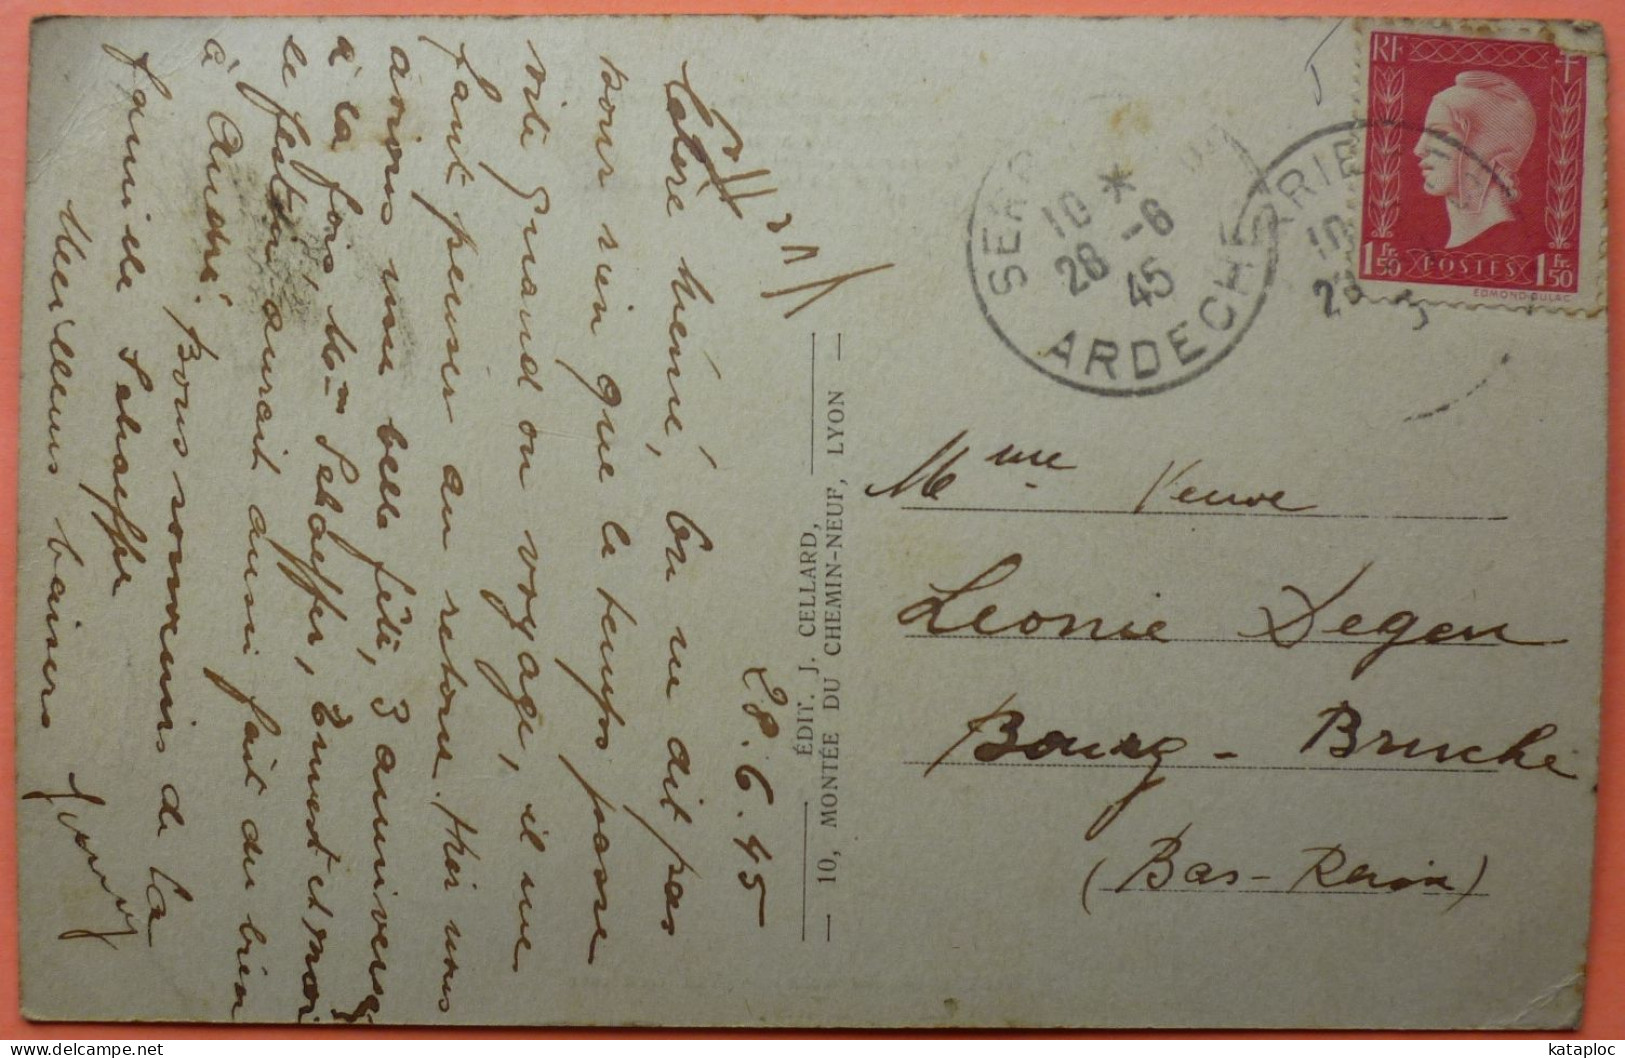 28.6.45
Chère mémé, on ne dit pas
pour rien que le temps passe
vite quand on voyage, il me
faut penser au retour. Hier nous
avions une belle fête, 3 anniversaires
à la fois Mme Schaeffer, Ernest et moi
le festin aurait aussi fait du bien
à André. Bons souvenirs de la
famille Schaeffer
Meilleurs baisers
ÉDIT. J. CELLARD,
10, MONTÉE DU CHEMIN-NEUF, LYON
RF
1 Fr. 50
POSTES
1 Fr. 50
EDMOND DULAC
10 *
28 -6
45
ARDECHE
Mme Veuve
Leonie Degen
Bourg-Bruche
(Bas-Rhin)
kataploc